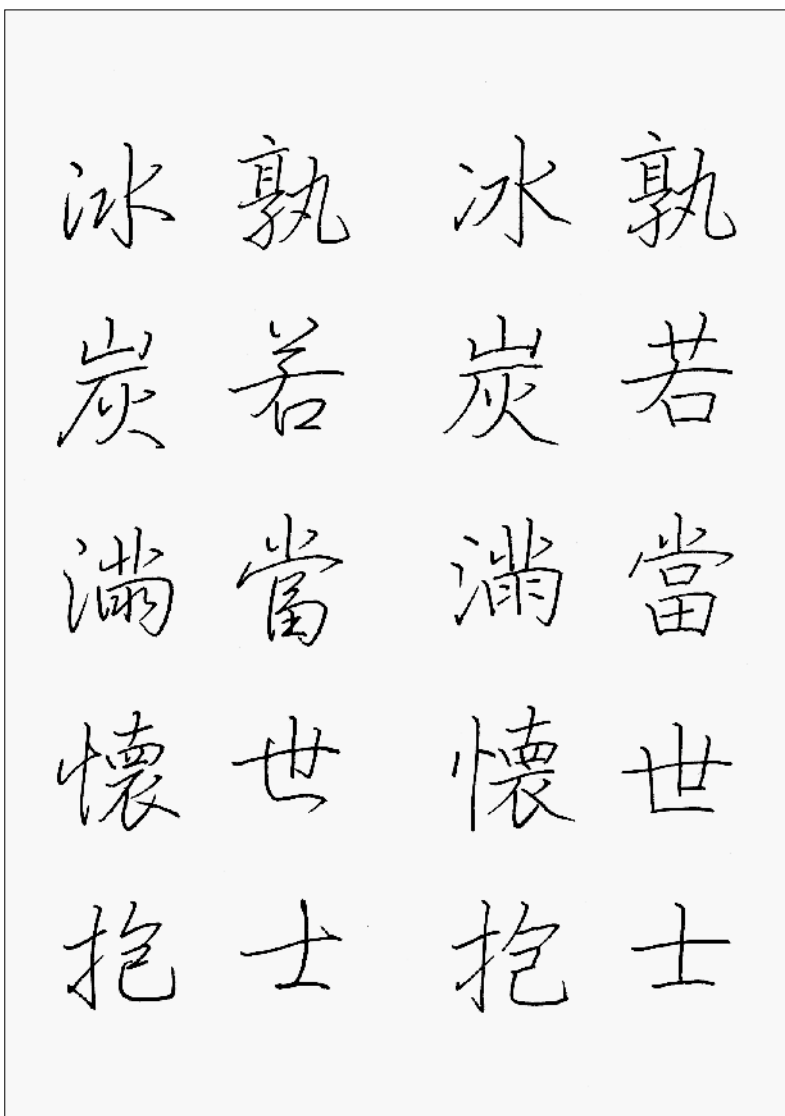 孰若當世士
冰炭滿懷抱
孰若當世士
冰炭滿懷抱